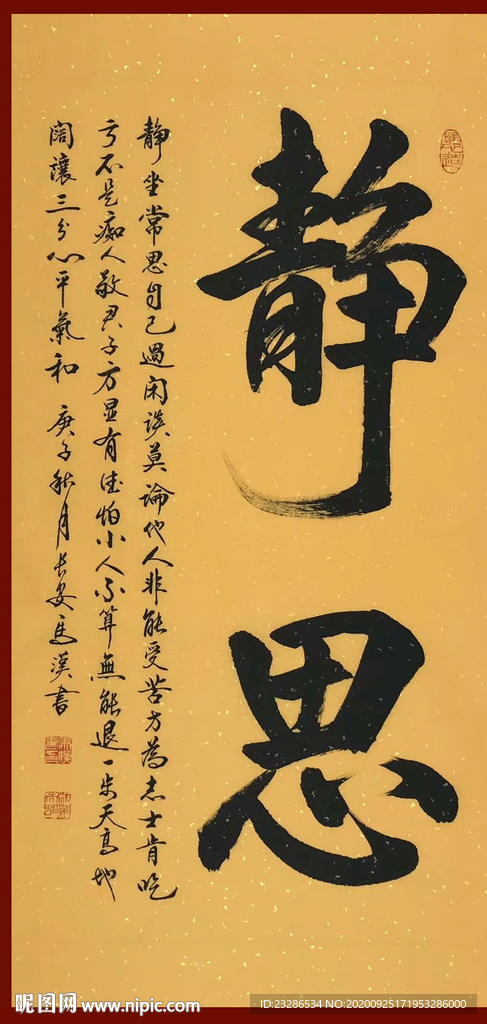 静思
静坐常思自己過闲谈莫論他人非能受苦方為志士肯吃
亏不是痴人敬君子方显有德怕小人不算無能退一步天高地
阔讓三分心平氣和 庚子秋月长安馬漢書
昵图网 www.nipic.com
ID:23286534 NO:20200925171953286000